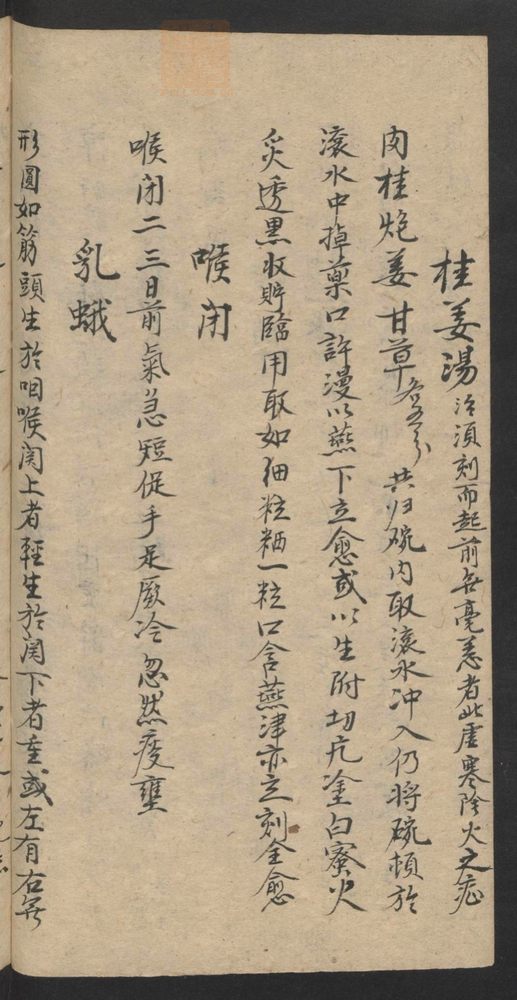 桂姜湯 治須刻而起前無毫恙者此虛寒陰火之症
肉桂炮姜甘草各五分 共归碗内取滚水冲入仍将碗頓於
滚水中掉藥口許漫以燕下立愈或以生附切片塗白蜜火
炙透黑收貯臨用取如細粒粞一粒口含燕津亦立刻全愈
喉闭
喉闭二三日前氣急短促手足厥冷忽然痰壅
乳蛾
形圓如筋頭生於咽喉関上者輕生於関下者重或左有右無